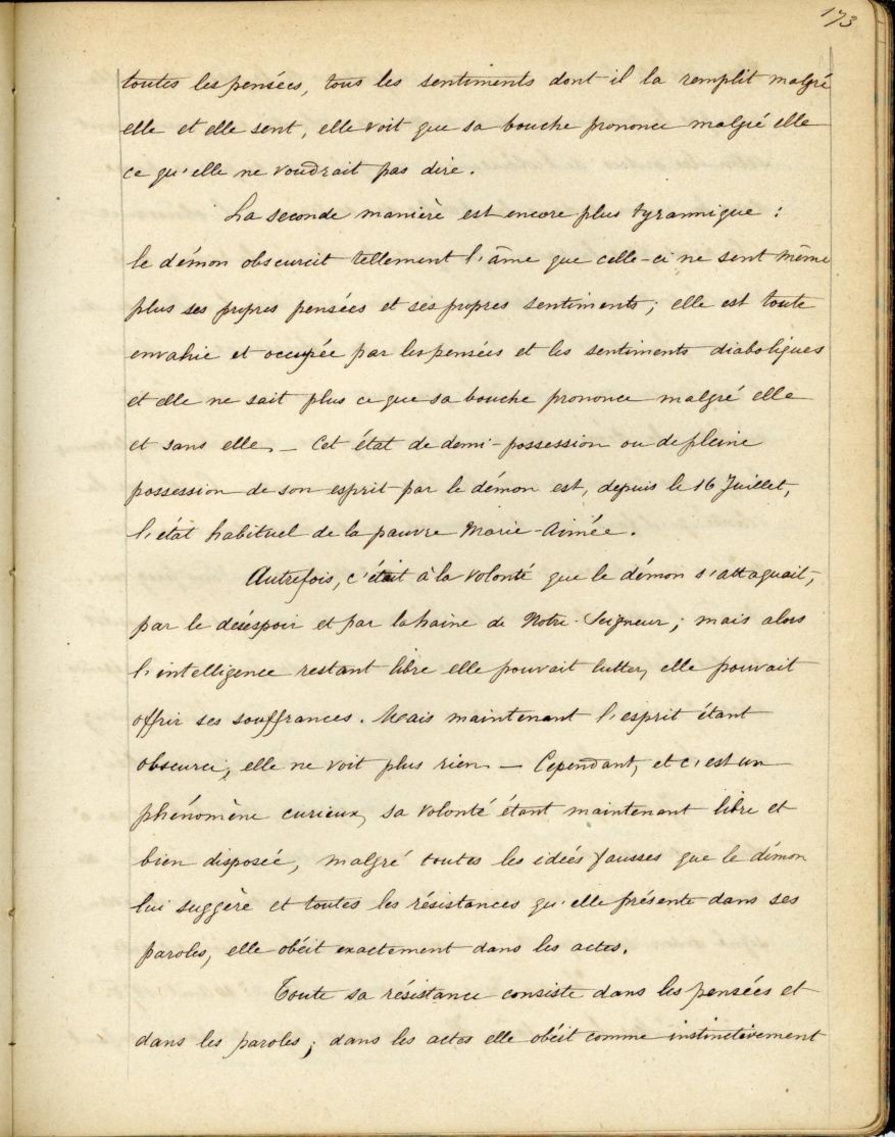 173
toutes les pensées, tous les sentiments dont il la remplit malgré
elle et elle sent, elle voit que sa bouche prononce malgré elle
ce qu'elle ne voudrait pas dire.
La seconde manière est encore plus tyrannique :
le démon obscurcit tellement l'âme que celle-ci ne sent même
plus ses propres pensées et ses propres sentiments ; elle est toute
envahie et occupée par les pensées et les sentiments diaboliques
et elle ne sait plus ce que sa bouche prononce malgré elle
et sans elle. — Cet état de demi-possession ou de pleine
possession de son esprit par le démon est, depuis le 16 Juillet,
l'état habituel de la pauvre Marie-Aimée.
Autrefois, c'était à la volonté que le démon s'attaquait,
par le désespoir et par la haine de Notre-Seigneur ; mais alors
l'intelligence restant libre elle pouvait lutter, elle pouvait
offrir ses souffrances. Mais maintenant l'esprit étant
obscurci, elle ne voit plus rien — Cependant, et c'est un
phénomène curieux, sa volonté étant maintenant libre et
bien disposée, malgré toutes les idées fausses que le démon
lui suggère et toutes les résistances qu'elle présente dans ses
paroles, elle obéit exactement dans les actes.
Toute sa résistance consiste dans les pensées et
dans les paroles ; dans les actes elle obéit comme instinctivement